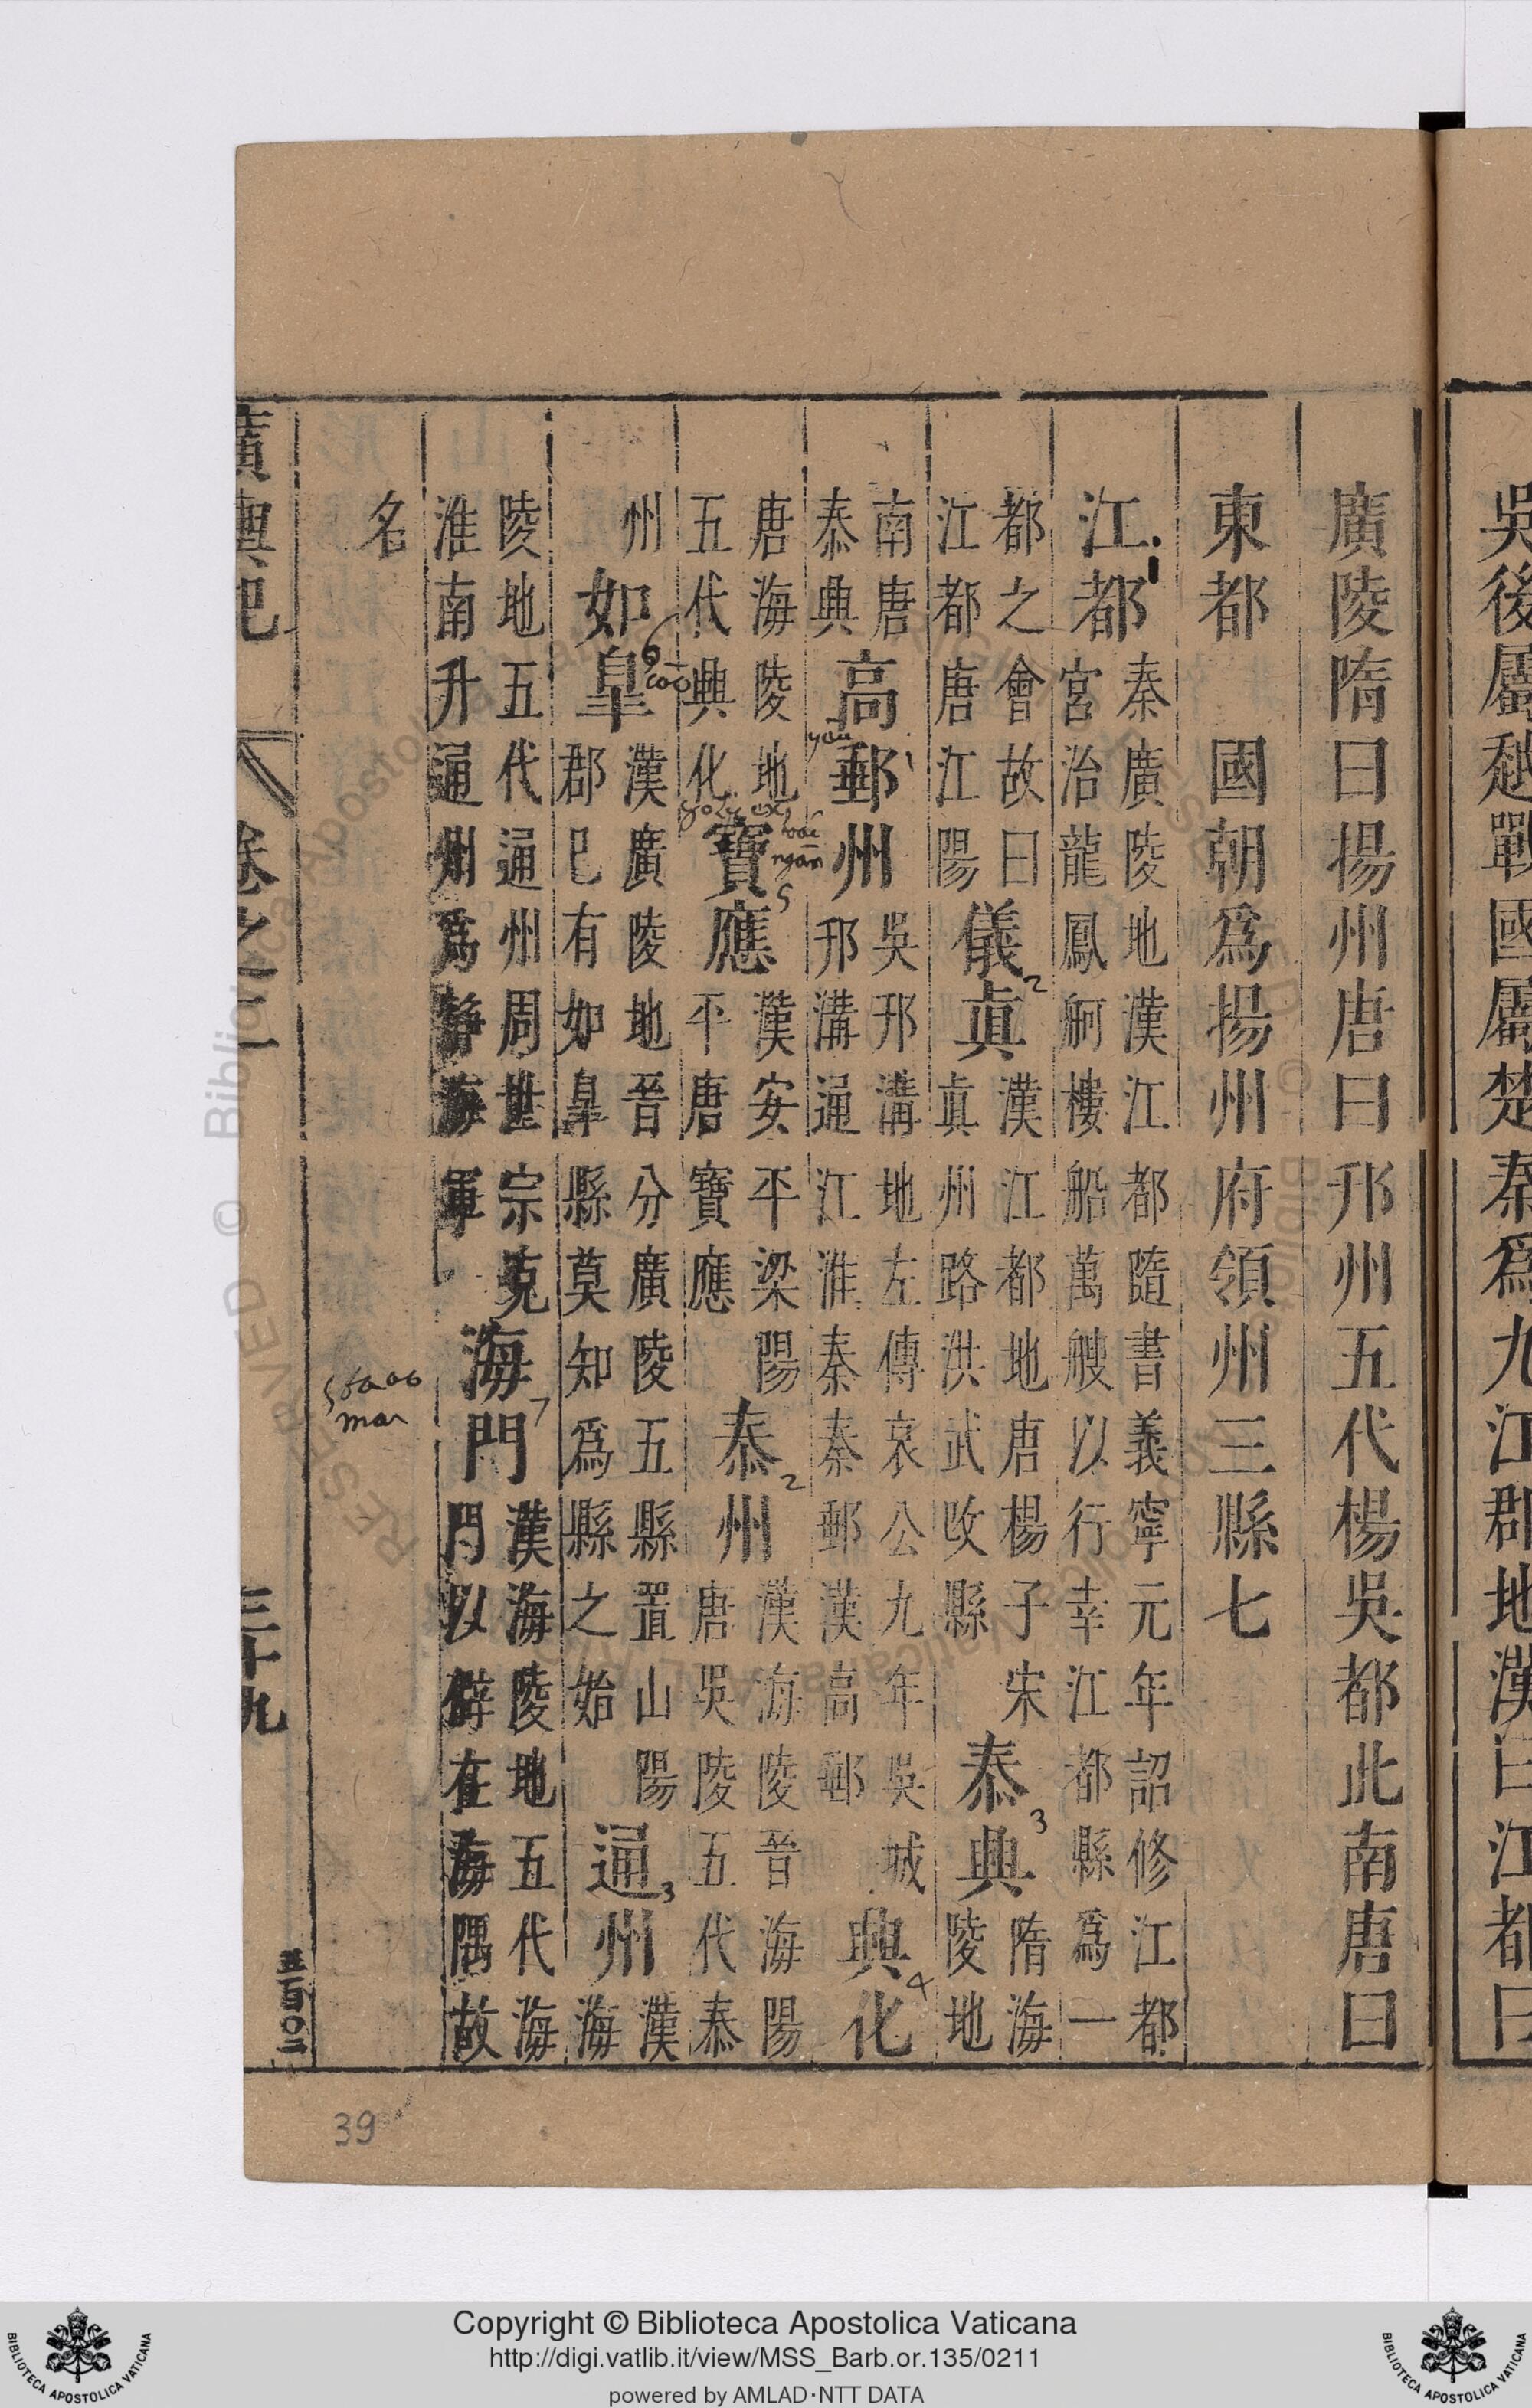 吳後屬越戰國屬楚秦爲九江郡地漢曰江都曰
廣陵隋曰揚州唐曰邗州五代楊吳都此南唐曰
東都　國朝爲揚州府領州三縣七
江都
秦廣陵地漢江都隨書義寧元年詔修江都
宮治龍鳳舸樓船萬艘以行幸江都縣爲一
都之會故曰
江都唐江陽
儀真
漢江都地唐楊子宋
真州路洪武改縣
泰興
隋海
陵地
南唐
泰興
高郵州
吳邗溝地左傳哀公九年吳城
邗溝通江淮秦秦郵漢高郵
興化
唐海陵地
五代興化
寶應
漢安平梁陽
平唐寶應
泰州
漢海陵晉海陽
唐吳陵五代泰
州
如皋
漢廣陵地晉分廣陵五縣置山陽
郡已有如皋縣莫知爲縣之始
通州
漢
海
陵地五代通州周世宗克
淮南升通州爲靜海軍
海門
漢海陵地五代海
門以僻在海隅故
名
廣輿記
卷之二
三十九
五百〇二
1
2
3
yâu
4
hoá
ngan
5
6
cao
2
3
7
39
Copyright © Biblioteca Apostolica Vaticana
http://digi.vatlib.it/view/MSS_Barb.or.135/0211
powered by AMLAD·NTT DATA
BIBLIOTECA APOSTOLICA VATICANA
BIBLIOTECA APOSTOLICA VATICANA